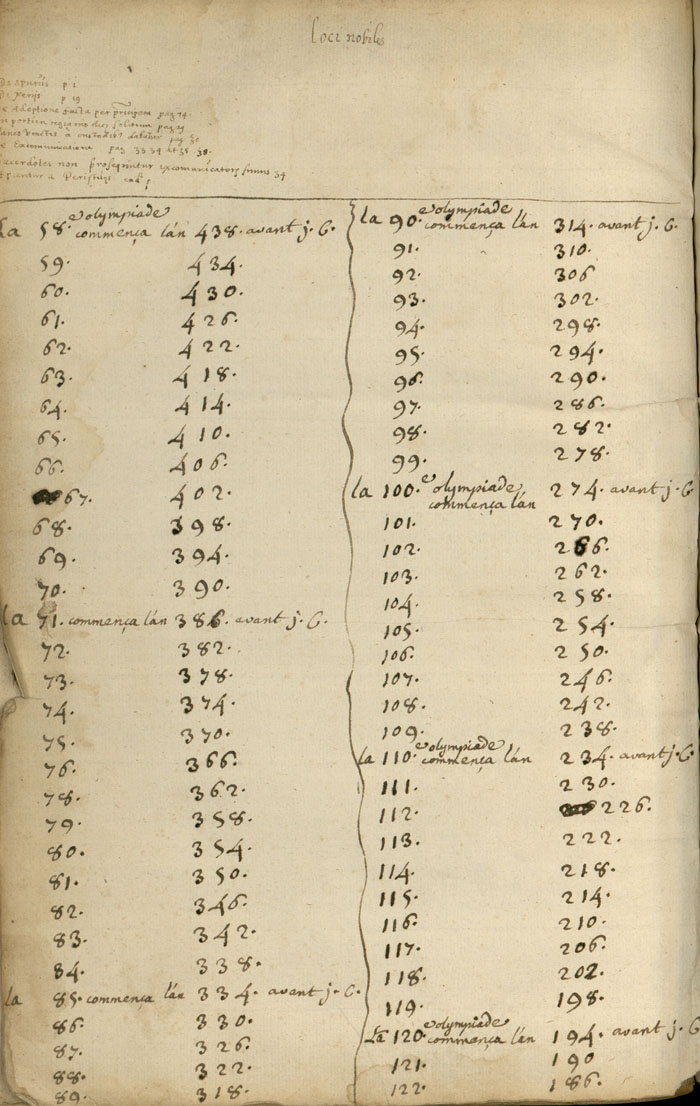 loci nobiles
De spuriis p 1
De Feriis p 19
De Adoptione facta per principem pag 74.
pag 29
pag 31
De Excommunicatione pag 33 34 et 35 38.
Sacerdotes non prosequuntur excomunicatorum funus 34
La 58.e olympiade commença l'an 438. avant j. C.
59. 434.
60. 430.
61. 426.
62. 422.
63. 418.
64. 414.
65. 410.
66. 406.
67. 402.
68. 398.
69. 394.
70. 390.
la 71. commença l'an 386. avant j. C.
72. 382.
73. 378.
74. 374.
75. 370.
76. 366.
78. 362.
79. 358.
80. 354.
81. 350.
82. 346.
83. 342.
84. 338.
la 85. commença l'an 334. avant j. C.
86. 330.
87. 326.
88. 322.
89. 318.
la 90.e olympiade commença l'an 314. avant j. C.
91. 310.
92. 306
93. 302.
94. 298.
95. 294.
96. 290.
97. 286.
98. 282.
99. 278.
la 100.e olympiade commença l'an 274. avant j. C.
101. 270.
102. 266.
103. 262.
104. 258.
105. 254.
106. 250.
107. 246.
108. 242.
109. 238.
la 110.e olympiade commença l'an 234. avant j. C.
111. 230.
112. 226.
113. 222.
114. 218.
115. 214.
116. 210.
117. 206.
118. 202.
119. 198.
La 120.e olympiade commença l'an 194. avant j. C.
121. 190
122. 186.